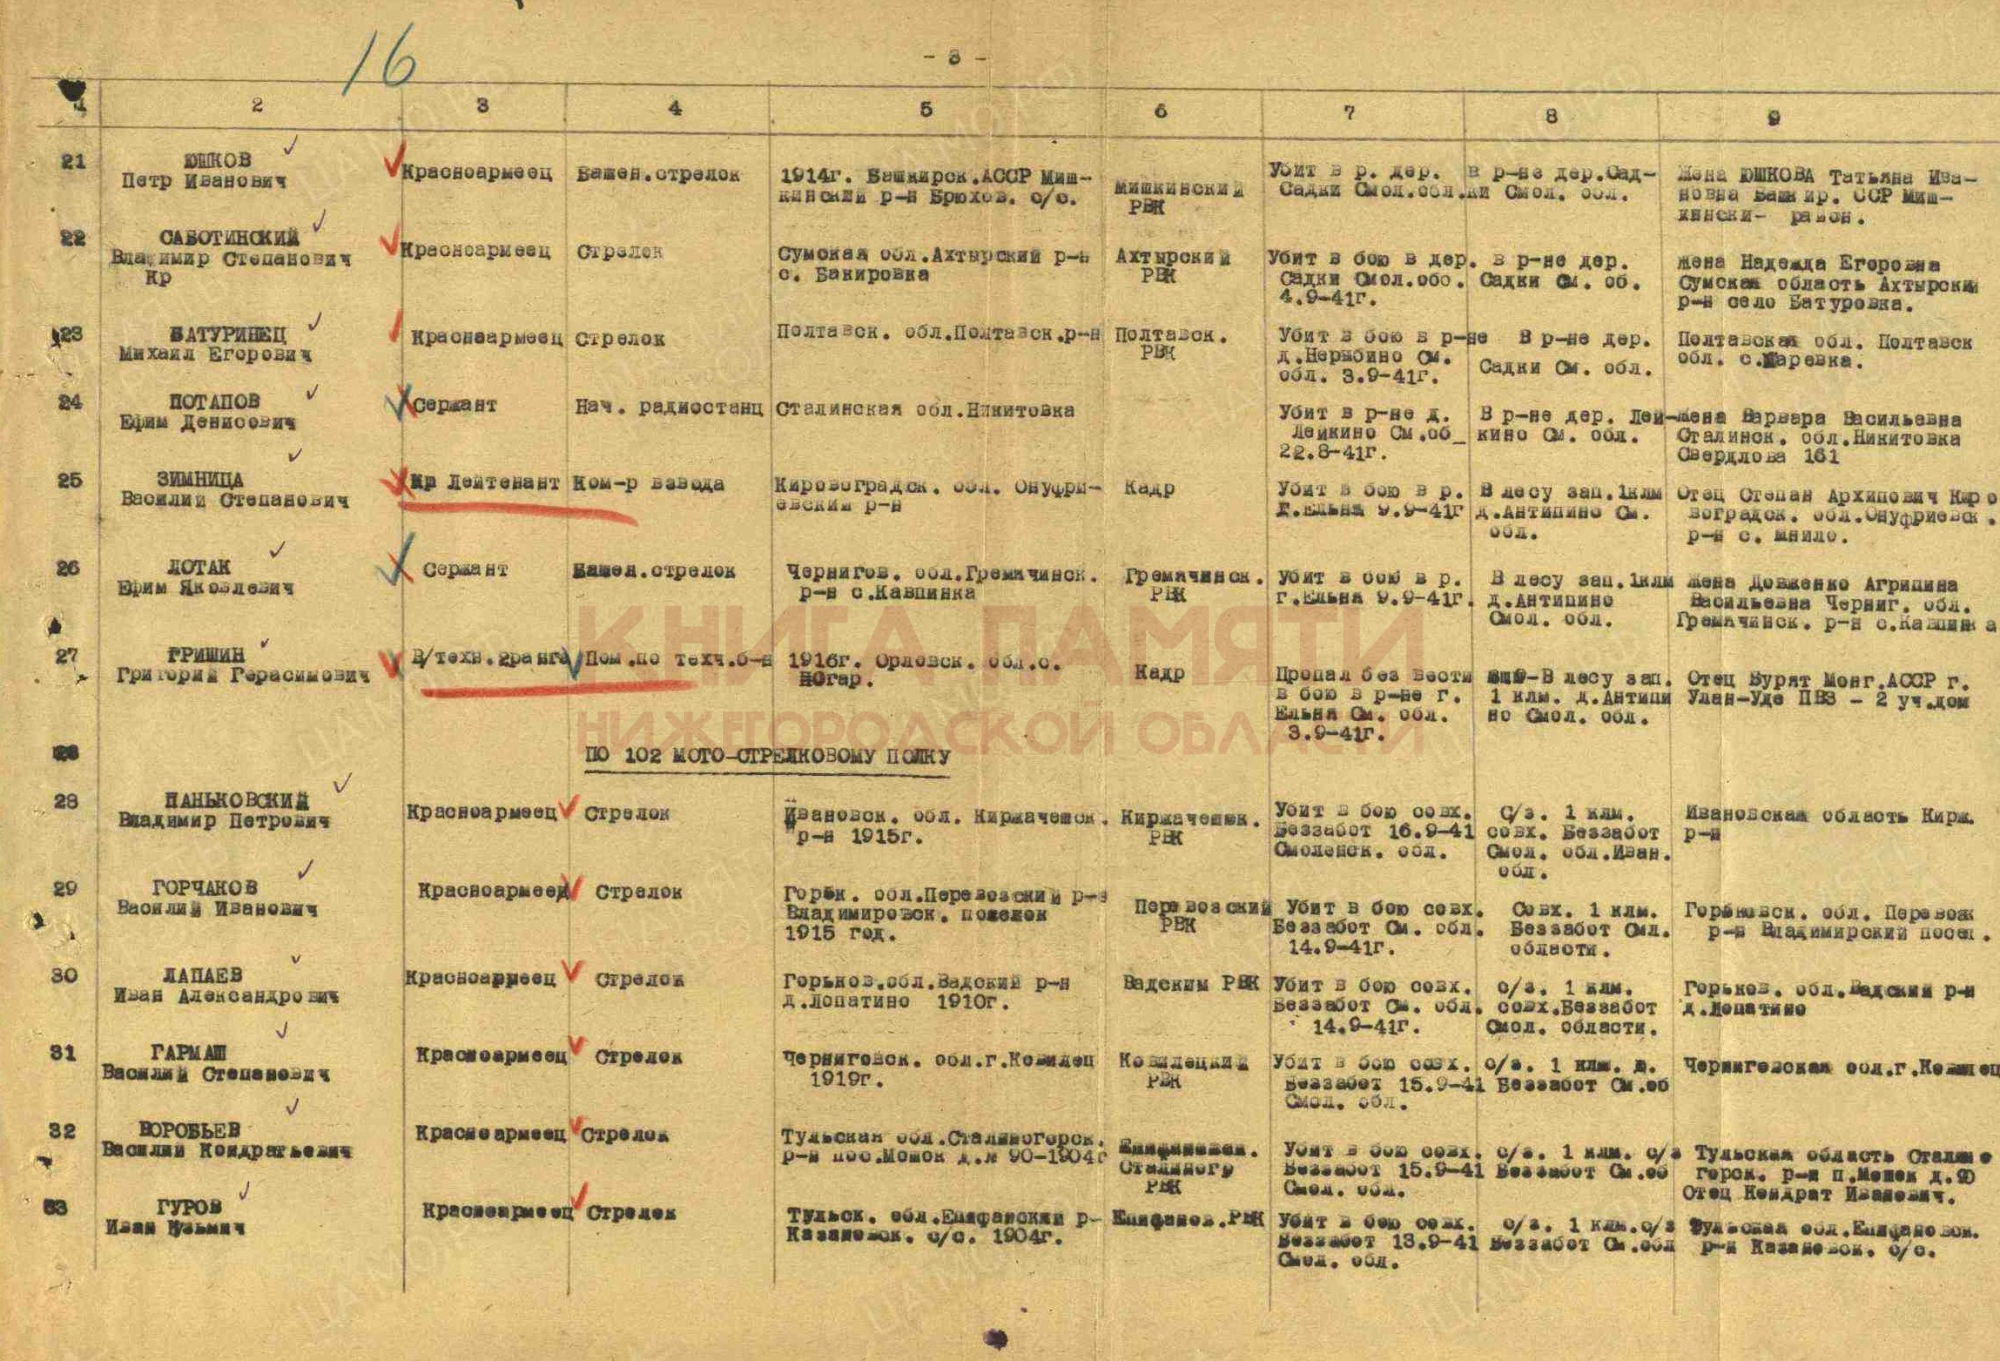 16
- 3 -
1 2 3 4 5 6 7 8 9
21 ЮШКОВ
Петр Иванович
Красноармеец
Башен.стрелок
1914г. Башкирск.АССР Миш-
кинский р-н Брюхов. с/с.
Мишкинский
РВК
Убит в р. дер.
Садки Смол.обл.
в р-не дер.Сад-
ки Смол. обл.
Жена ЮШКОВА Татьяна Ива-
новна Башкир. ССР Миш-
кински- район.
22 САБОТИНСКИЙ
Владимир Степанович
Кр
Красноармеец
Стрелок
Сумская обл.Ахтырский р-н
с. Бакировка
Ахтырский
РВК
Убит в бою в дер.
Садки Смол.обо.
4.9-41г.
в р-не дер.
Садки См. об.
жена Надежда Егоровна
Сумская область Ахтырский
р-н село Батуровка.
23 БАТУРИНЕЦ
Михаил Егорович
Красноармеец
Стрелок
Полтавск. обл.Полтавск.р-н
Полтавск.
РВК
Убит в бою в р-не
д.Нерыбино См.
обл. 3.9-41г.
В р-не дер.
Садки См. обл.
Полтавская обл. Полтавск
обл. с.Шаревка.
24 ПОТАПОВ
Ефим Денисович
Сержант
Нач. радиостанц
Сталинская обл.Никитовка
Убит в р-не д.
Лейкино См.об_
22.8-41г.
В р-не дер. Лей-
кино См. обл.
жена Варвара Васильевна
Сталинск. обл.Никитовка
Свердлова 161
25 ЗИМНИЦА
Василий Степанович
Мл Лейтенант
Ком-р взвода
Кировоградск. обл. Онуфри-
евский р-н
Кадр
Убит в бою в р.
г.Ельня 9.9-41г
В лесу зап. 1клм
д.Антипино См.
обл.
Отец Степан Архипович Киро
воградск. обл.Онуфриевск.
р-н с. Мнило.
26 ЛОТАК
Ефим Яковлевич
Сержант
Башен.стрелок
Чернигов. обл.Гремачинск.
р-н с.Кавпинка
Гремачинск.
РВК
Убит в бою в р.
г.Ельня 9.9-41г.
В лесу зап. 1клм
д.Антипино
Смол. обл.
жена Довженко Агрипина
Васильевна Черниг. обл.
Гремачинск. р-н с.Кавпинка
27 ГРИШИН
Григорий Герасимович
В/техн.2ранга
Пом.по техч.б-н
1916г. Орловск. обл.с.
Югар.
Кадр
Пропал без вести
в бою в р-не г.
Ельня См. обл.
3.9-41г.
В лесу зап.
1 клм. д.Антипи
но Смол. обл.
Отец Бурят Монг.АССР г.
Улан-Уде ПВЗ - 2 уч.дом
КНИГА ПАМЯТИ
НИЖЕГОРОДСКОЙ ОБЛАСТИ
ПО 102 МОТО-СТРЕЛКОВОМУ ПОЛКУ
28 ПАНЬКОВСКИЙ
Владимир Петрович
Красноармеец
Стрелок
Ивановск. обл. Киржаченск.
р-н 1915г.
Киржаченск.
РВК
Убит в бою совх.
Беззабот 16.9-41
Смоленск. обл.
С/з. 1 клм.
совх. Беззабот
Смол. обл.Иван.
обл.
Ивановская область Кирж.
р-н
29 ГОРЧАКОВ
Василий Иванович
Красноармеец
Стрелок
Горьк. обл.Перевозский р-н
Владимировск. поселок
1915 год.
Перевозский
РВК
Убит в бою совх.
Беззабот См. обл.
14.9-41г.
Совх. 1 клм.
Беззабот Смл.
области.
Горьковск. обл. Перевозк
р-н Владимирский посел.
30 ЛАПАЕВ
Иван Александрович
Красноармеец
Стрелок
Горьков.обл.Вадский р-н
д.Лопатино 1910г.
Вадским РВК
Убит в бою совх.
Беззабот См. обл.
14.9-41г.
с/з. 1 клм.
совх.Беззабот
Смол. области.
Горьков. обл.Вадский р-н
д.Лопатино
31 ГАРМАШ
Василий Степанович
Красноармеец
Стрелок
Черниговск. обл.г.Ковилец
1919г.
Ковилецкий
РВК
Убит в бою совх.
Беззабот 15.9-41
Смол. обл.
с/з. 1 клм. д.
Беззабот См.об
Черниговская обл.г.Ковилец
32 ВОРОБЬЕВ
Василий Кондратьевич
Красноармеец
Стрелок
Тульская обл.Сталиногорск.
р-н пос.Мошок д.н 90-1904г
Сталиногр
РВК
Убит в бою совх.
Беззабот 15.9-41
Смол. обл.
с/з. 1 клм. с/з
Беззабот См.об
Тульская область Сталино
горск. р-н п.Мошок д.90
Отец Кондрат Иванович.
33 ГУРОВ
Иван Кузьмич
Красноармеец
Стрелок
Тульск. обл.Епифанский р-
Казановск. с/с. 1904г.
Епифанов.РВК
Убит в бою совх.
Беззабот 13.9-41
Смол. обл.
с/з. 1 клм.с/з
Беззабот См.обл
Тульская обл.Епифановск.
р-н Казановск. с/с.